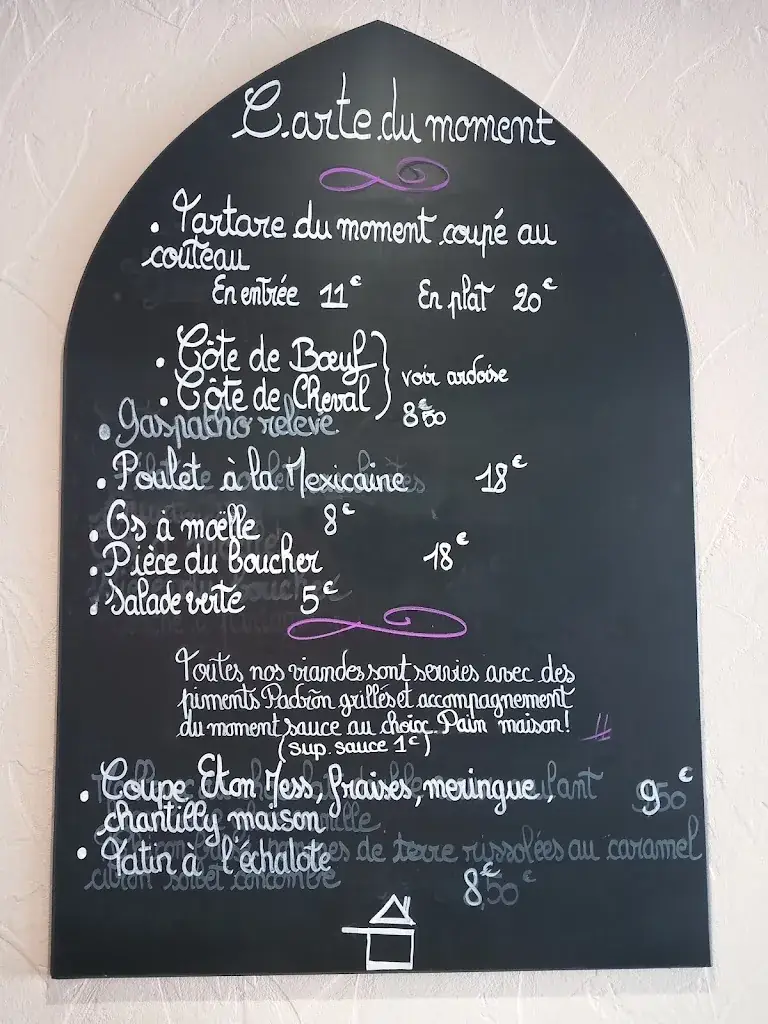 Carte du moment
. Tartare du moment coupé au
couteau
En entrée 11€ En plat 20€
. Côte de Bœuf
. Côte de Cheval
voir ardoise
. Gaspatho relevé 8€50
. Poulet à la Mexicaine 18€
. Os à moëlle 8€
. Pièce du boucher 18€
. Salade verte 5€
Toutes nos viandes sont servies avec des
piments Padrõn grillés et accompagnement
du moment, sauce au choix. Pain maison!
(sup. sauce 1€)
. Coupe Eton Mess, fraises, meringue, 9€
chantilly maison
. Tatin à l'échalote
8€